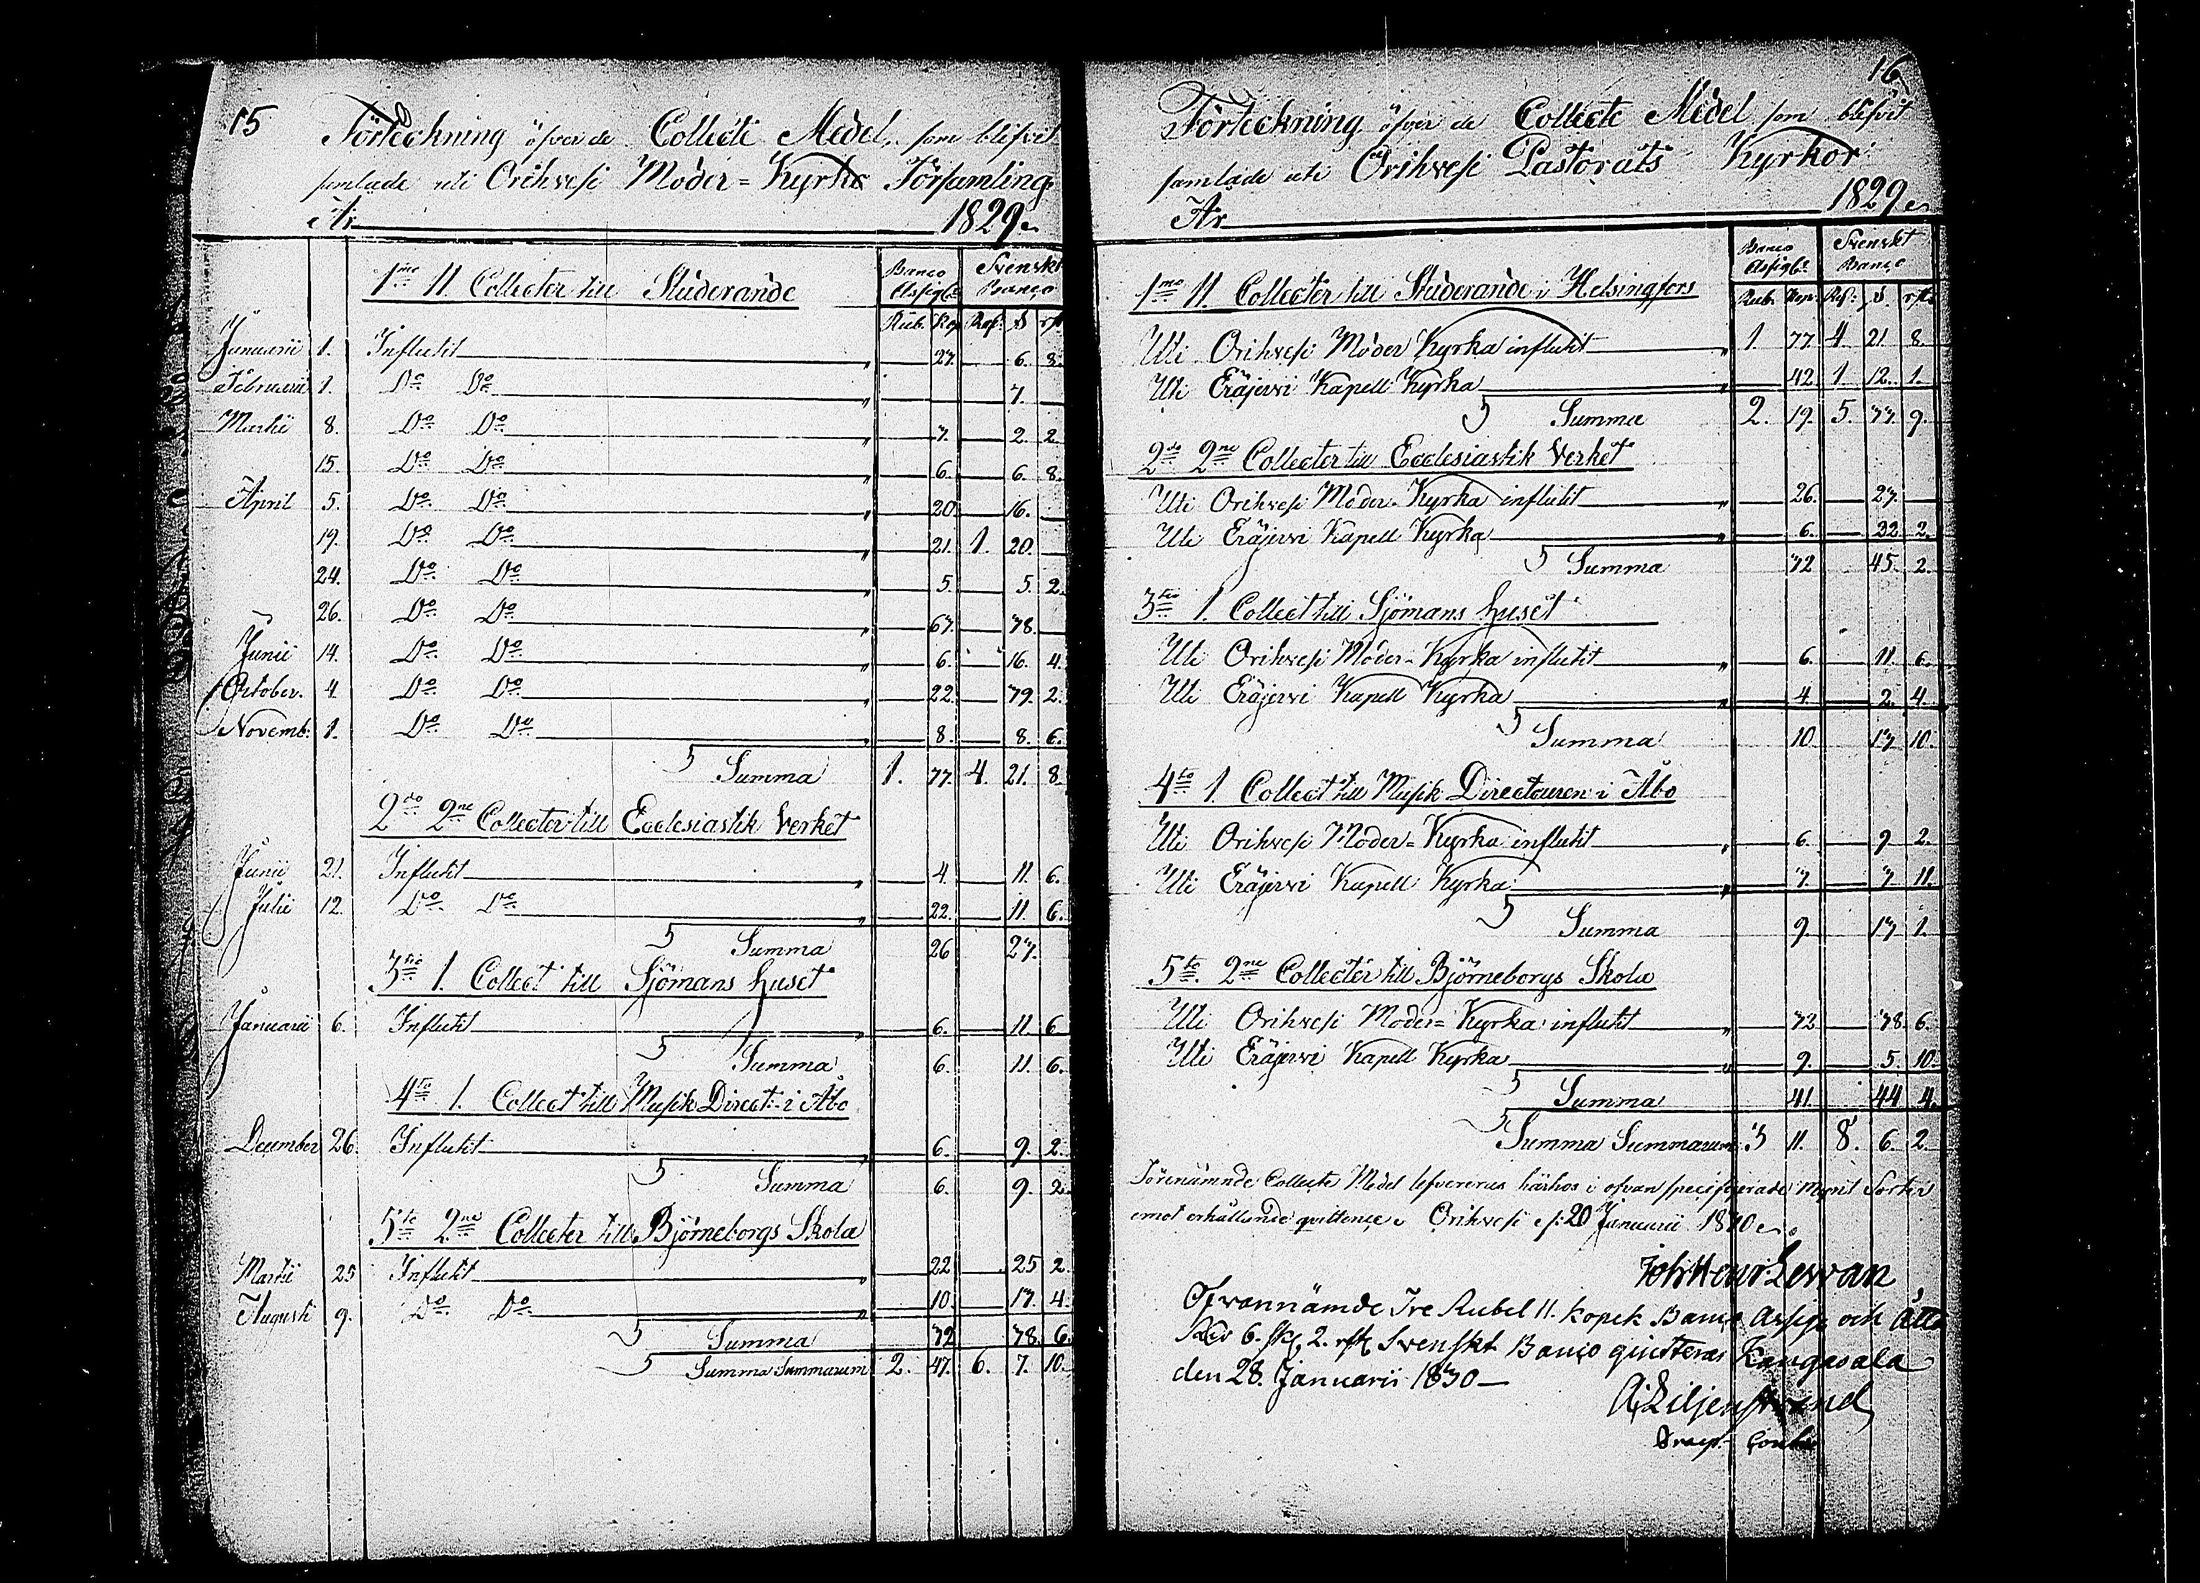 15
Förteckning öfver de Collecte Medel, som blifvit
samlade uti Orihvesi Moder=Kyrko Församling
År 1829.
Banco Assigb: Svenskt Banco
1mo 11. Collecter till Studerande
Rub. Kop. Rd: s rst
Januarii 1. Influtit 27. 6. 8.
Februarii 1. Do Do 7.
Martii 8. Do Do 7. 2. 2.
15. Do Do 6. 6. 8.
April 5. Do Do 20. 16.
19. Do Do 21. 1. 20.
24. Do Do 5. 5 2.
26. Do Do 67. 38.
Junii 14. Do Do 6. 16. 4.
October. 4. Do Do 22. 39. 2.
Novemb: 1. Do Do 8. 8. 6.
Summa 1. 77. 4. 21. 8.
2do 2ne Collecter till Ecclesiastik Verket
Junii 21. Influtit 4. 11. 6.
Julii 12. Do Do 22. 11. 6.
Summa 26 23.
3tio 1. Collect till Sjömans huset
Januarii 6. Influtit 6. 11 6
Summa 6. 11. 6.
4to 1. Collect till Musik Direct: i Åbo
December 26. Influtit 6. 9. 2.
Summa 6. 9. 2.
5te 2ne Collecter till Björneborgs Skola
Martii 25 Influtit 22 25 2.
Augusti 9. Do Do 10. 13. 4.
Summa 32 38. 6.
Summa Summarum 2. 47. 6. 7. 10.
16.
Förteckning öfver de Collecte Medel som blifvit
samlade uti Orihvesi Pastorats Kyrkor
År 1829.
Banco Assigb: Svenskt Banco
1mo 11. Collecter till Studerande i Helsingfors
Rub. Kop. Rd: s. rst.
Uti Orihvesi Moder Kyrka influtit 1 77 4 21 8.
Uti Eräjervi Kapell Kyrka 42 1 12. 1.
Summa 2. 19. 5. 33. 9.
2do 2ne Collecter till Ecclesiastik Verket
Uti Orihvesi Moder-Kyrka influtit 26. 23.
Uti Eräjervi Kapell Kyrka 6. 22 2.
Summa 32 45. 2.
3tio 1. Collect till Sjömans huset
Uti Orihvesi Moder-Kyrka influtit 6. 11. 6.
Uti Eräjervi Kapell Kyrka 4. 2. 4.
Summa 10. 13 10.
4to 1. Collect till Musik Directeuren i Åbo
Uti Orihvesi Moder=Kyrka influtit 6. 9 2.
Uti Eräjervi Kapell Kyrka 3. 3 11.
Summa 9. 13 1.
5te 2ne Collecter till Björneborgs Skola
Uti Orihvesi Moder=Kyrka influtit 32 38. 6.
Uti Eräjervi Kapell Kyrka 9. 5. 10.
Summa 41. 44 4.
Summa Summarum 3 11. 8. 6. 2.
Förenämnde Collecte Medel lefvereras härhos i ofvan specificerade mynt Sorter
emot erhållande qvittence. Orihvesi d: 20 Januarii 1830.
Joh Henr Lewan
Ofvannämde Tre Rubel 11. kopek Banco Assign och Åtta
Rdr 6. sk, 2. rst Svenskt Banco quitteras Kangasala
den 28. Januarii 1830—
A: Liljenstrand